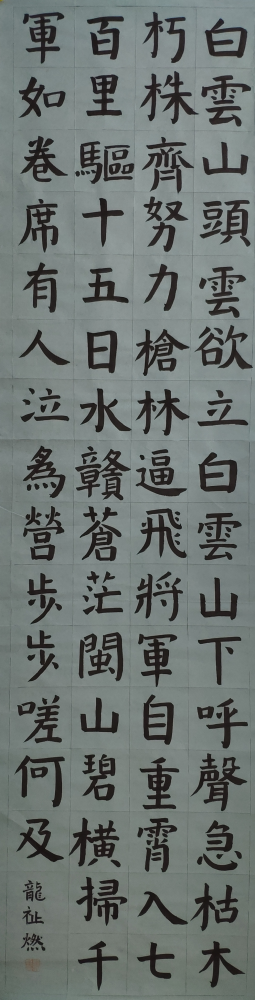 白雲山頭雲欲立白雲山下呼聲急枯木
朽株齊努力槍林逼飛將軍自重霄入七
百里驅十五日水贛蒼茫閩山碧橫掃千
軍如卷席有人泣爲營步步嗟何及
龍祉燃